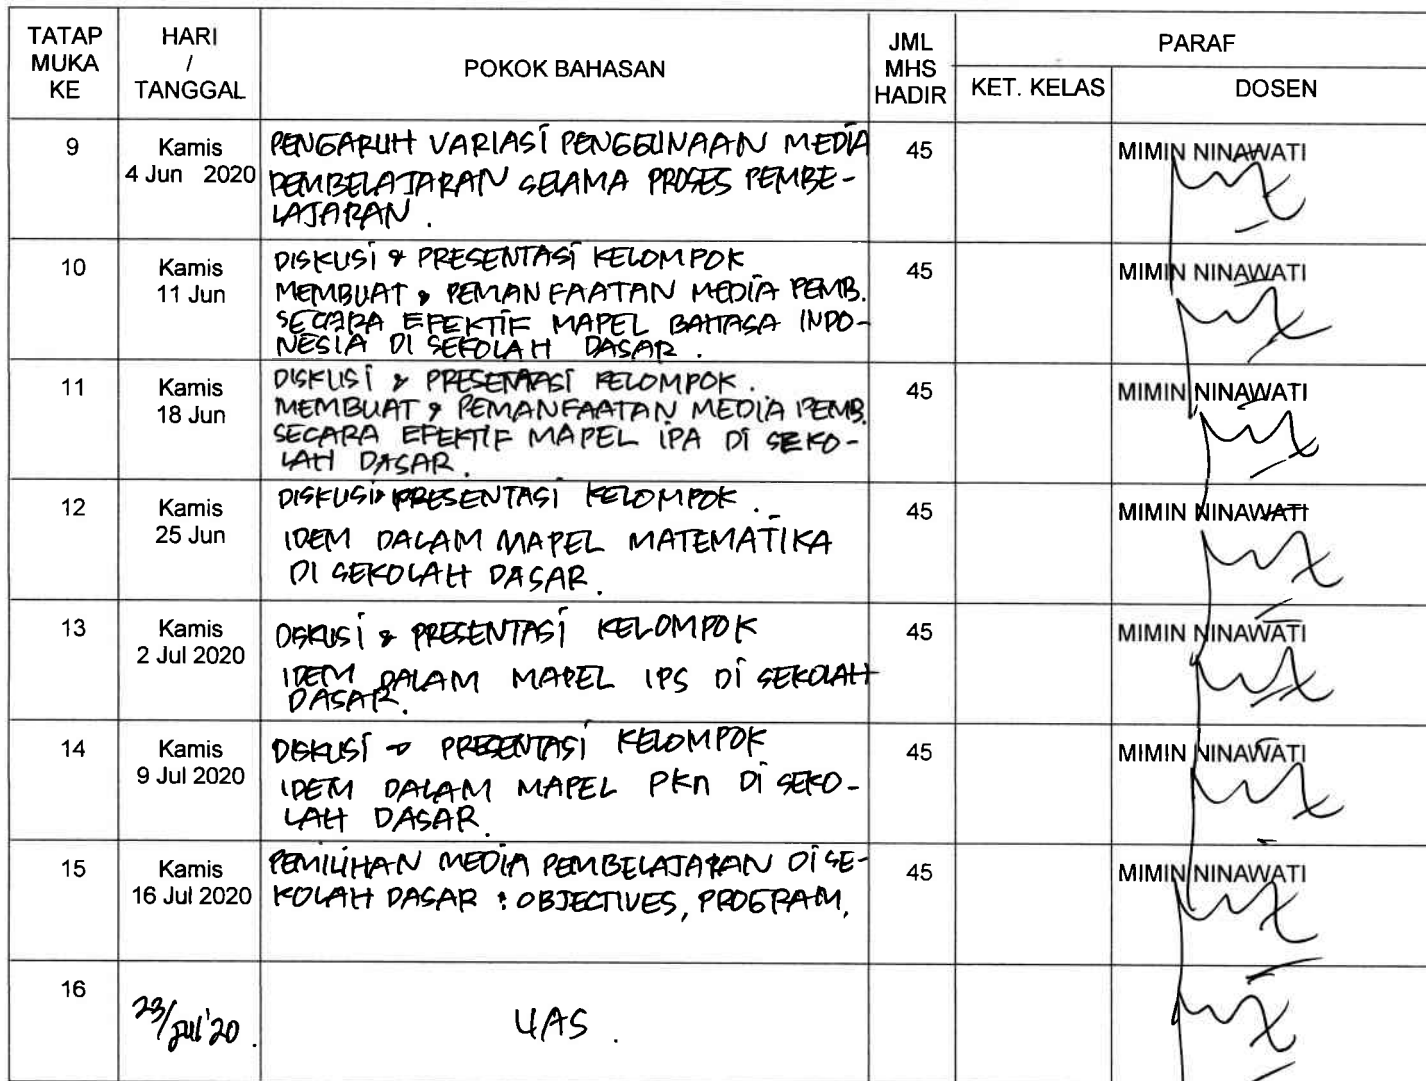 TATAP MUKA KE
HARI / TANGGAL
POKOK BAHASAN
JML MHS HADIR
PARAF
KET. KELAS
DOSEN
9
Kamis
4 Jun 2020
PENGARUH VARIASI PENGGUNAAN MEDIA
PEMBELAJARAN SELAMA PROSES PEMBE-
LAJARAN.
45
MIMIN NINAWATI
10
Kamis
11 Jun
DISKUSI & PRESENTASI KELOMPOK
MEMBUAT & PEMANFAATAN MEDIA PEMB.
SECARA EFEKTIF MAPEL BAHASA INDO-
NESIA DI SEKOLAH DASAR.
45
MIMIN NINAWATI
11
Kamis
18 Jun
DISKUSI & PRESENTASI KELOMPOK.
MEMBUAT & PEMANFAATAN MEDIA PEMB.
SECARA EFEKTIF MAPEL IPA DI SEKO-
LAH DASAR.
45
MIMIN NINAWATI
12
Kamis
25 Jun
DISKUSI & PRESENTASI KELOMPOK.
IDEM DALAM MAPEL MATEMATIKA
DI SEKOLAH DASAR.
45
MIMIN NINAWATI
13
Kamis
2 Jul 2020
DISKUSI & PRESENTASI KELOMPOK
IDEM DALAM MAPEL IPS DI SEKOLAH
DASAR.
45
MIMIN NINAWATI
14
Kamis
9 Jul 2020
DISKUSI & PRESENTASI KELOMPOK
IDEM DALAM MAPEL PKn DI SEKO-
LAH DASAR.
45
MIMIN NINAWATI
15
Kamis
16 Jul 2020
PEMILIHAN MEDIA PEMBELAJARAN DI SE-
KOLAH DASAR : OBJECTIVES, PROGRAM.
45
MIMIN NINAWATI
16
23/Jul'20.
UAS.